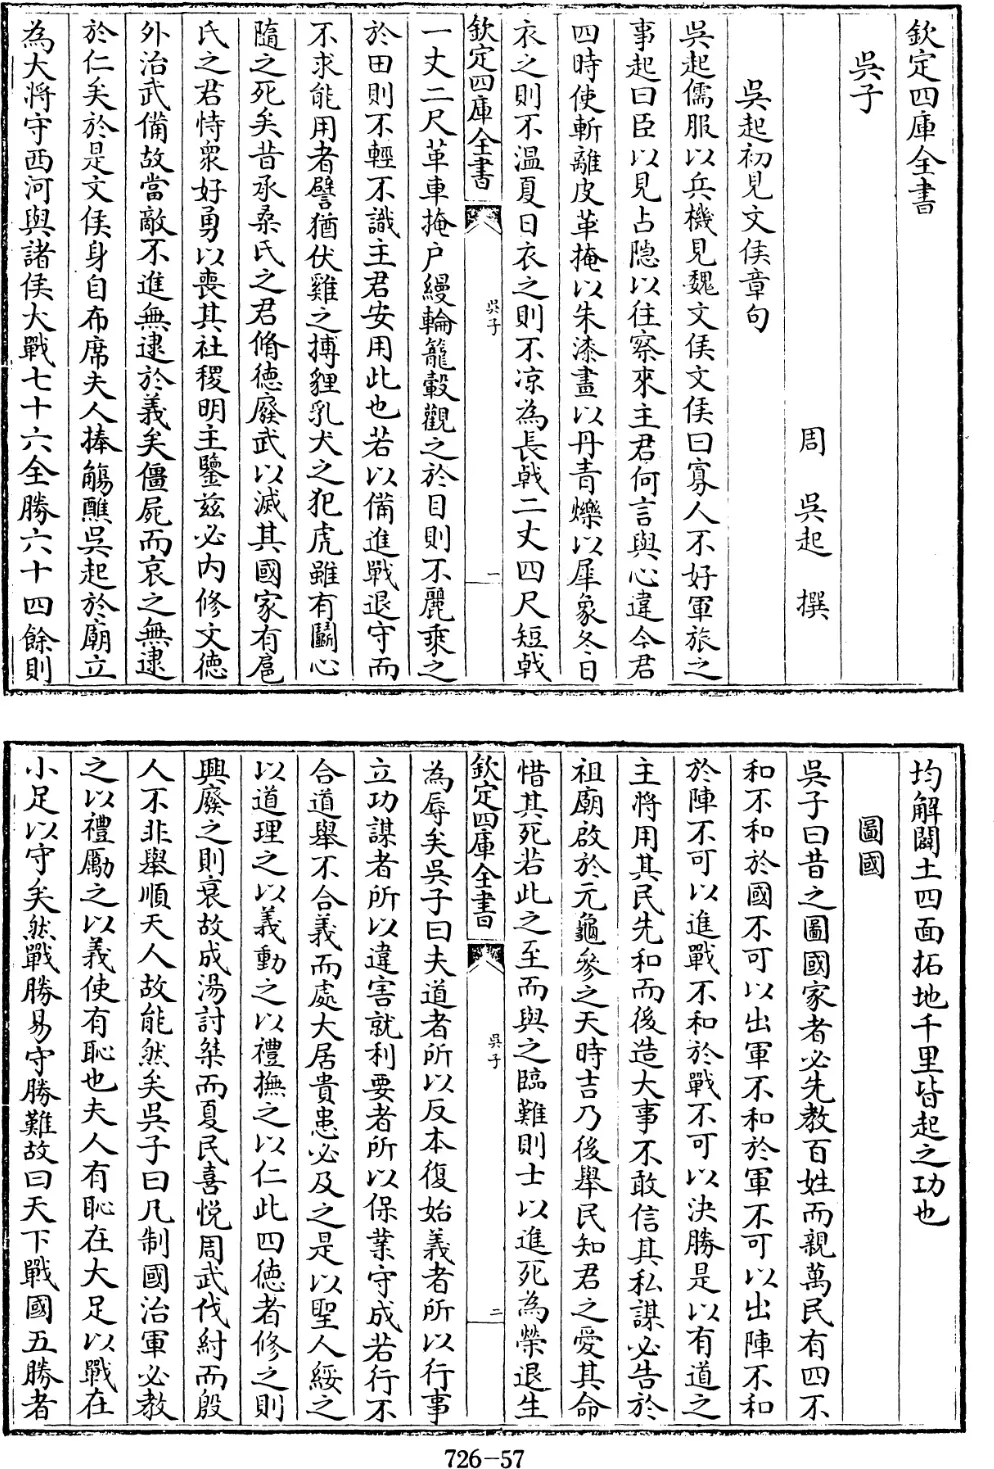 欽定四庫全書
吳子
周 吳起 撰
吳起初見文侯章句
吳起儒服以兵機見魏文侯文侯曰寡人不好軍旅之
事起曰臣以見占隠以往察來主君何言與心違今君
四時使斬離皮革掩以朱漆畫以丹青爍以犀象冬日
衣之則不温夏日衣之則不凉為長戟二丈四尺短戟
欽定四庫全書
吳子
一
一丈二尺革車掩户縵輪籠轂觀之於目則不麗乘之
於田則不輕不識主君安用此也若以備進戰退守而
不求能用者譬猶伏雞之搏貍乳犬之犯虎雖有鬭心
隨之死矣昔承桑氏之君脩德廢武以滅其國家有扈
氏之君恃衆好勇以喪其社稷明主鑒兹必内修文德
外治武備故當敵不進無逮於義矣僵屍而哀之無逮
於仁矣於是文侯身自布席夫人捧觴醮吳起於廟立
為大將守西河與諸侯大戰七十六全勝六十四餘則
均解闢土四面拓地千里皆起之功也
圖國
吳子曰昔之圖國家者必先教百姓而親萬民有四不
和不和於國不可以出軍不和於軍不可以出陣不和
於陣不可以進戰不和於戰不可以決勝是以有道之
主將用其民先和而後造大事不敢信其私謀必告於
祖廟啟於元龜參之天時吉乃後舉民知君之愛其命
惜其死若此之至而與之臨難則士以進死為榮退生
欽定四庫全書
吳子
二
為辱矣吳子曰夫道者所以反本復始義者所以行事
立功謀者所以違害就利要者所以保業守成若行不
合道舉不合義而處大居貴患必及之是以聖人綏之
以道理之以義動之以禮撫之以仁此四德者修之則
興廢之則衰故成湯討桀而夏民喜悦周武伐紂而殷
人不非舉順天人故能然矣吳子曰凡制國治軍必教
之以禮勵之以義使有恥也夫人有恥在大足以戰在
小足以守矣然戰勝易守勝難故曰天下戰國五勝者
726-57